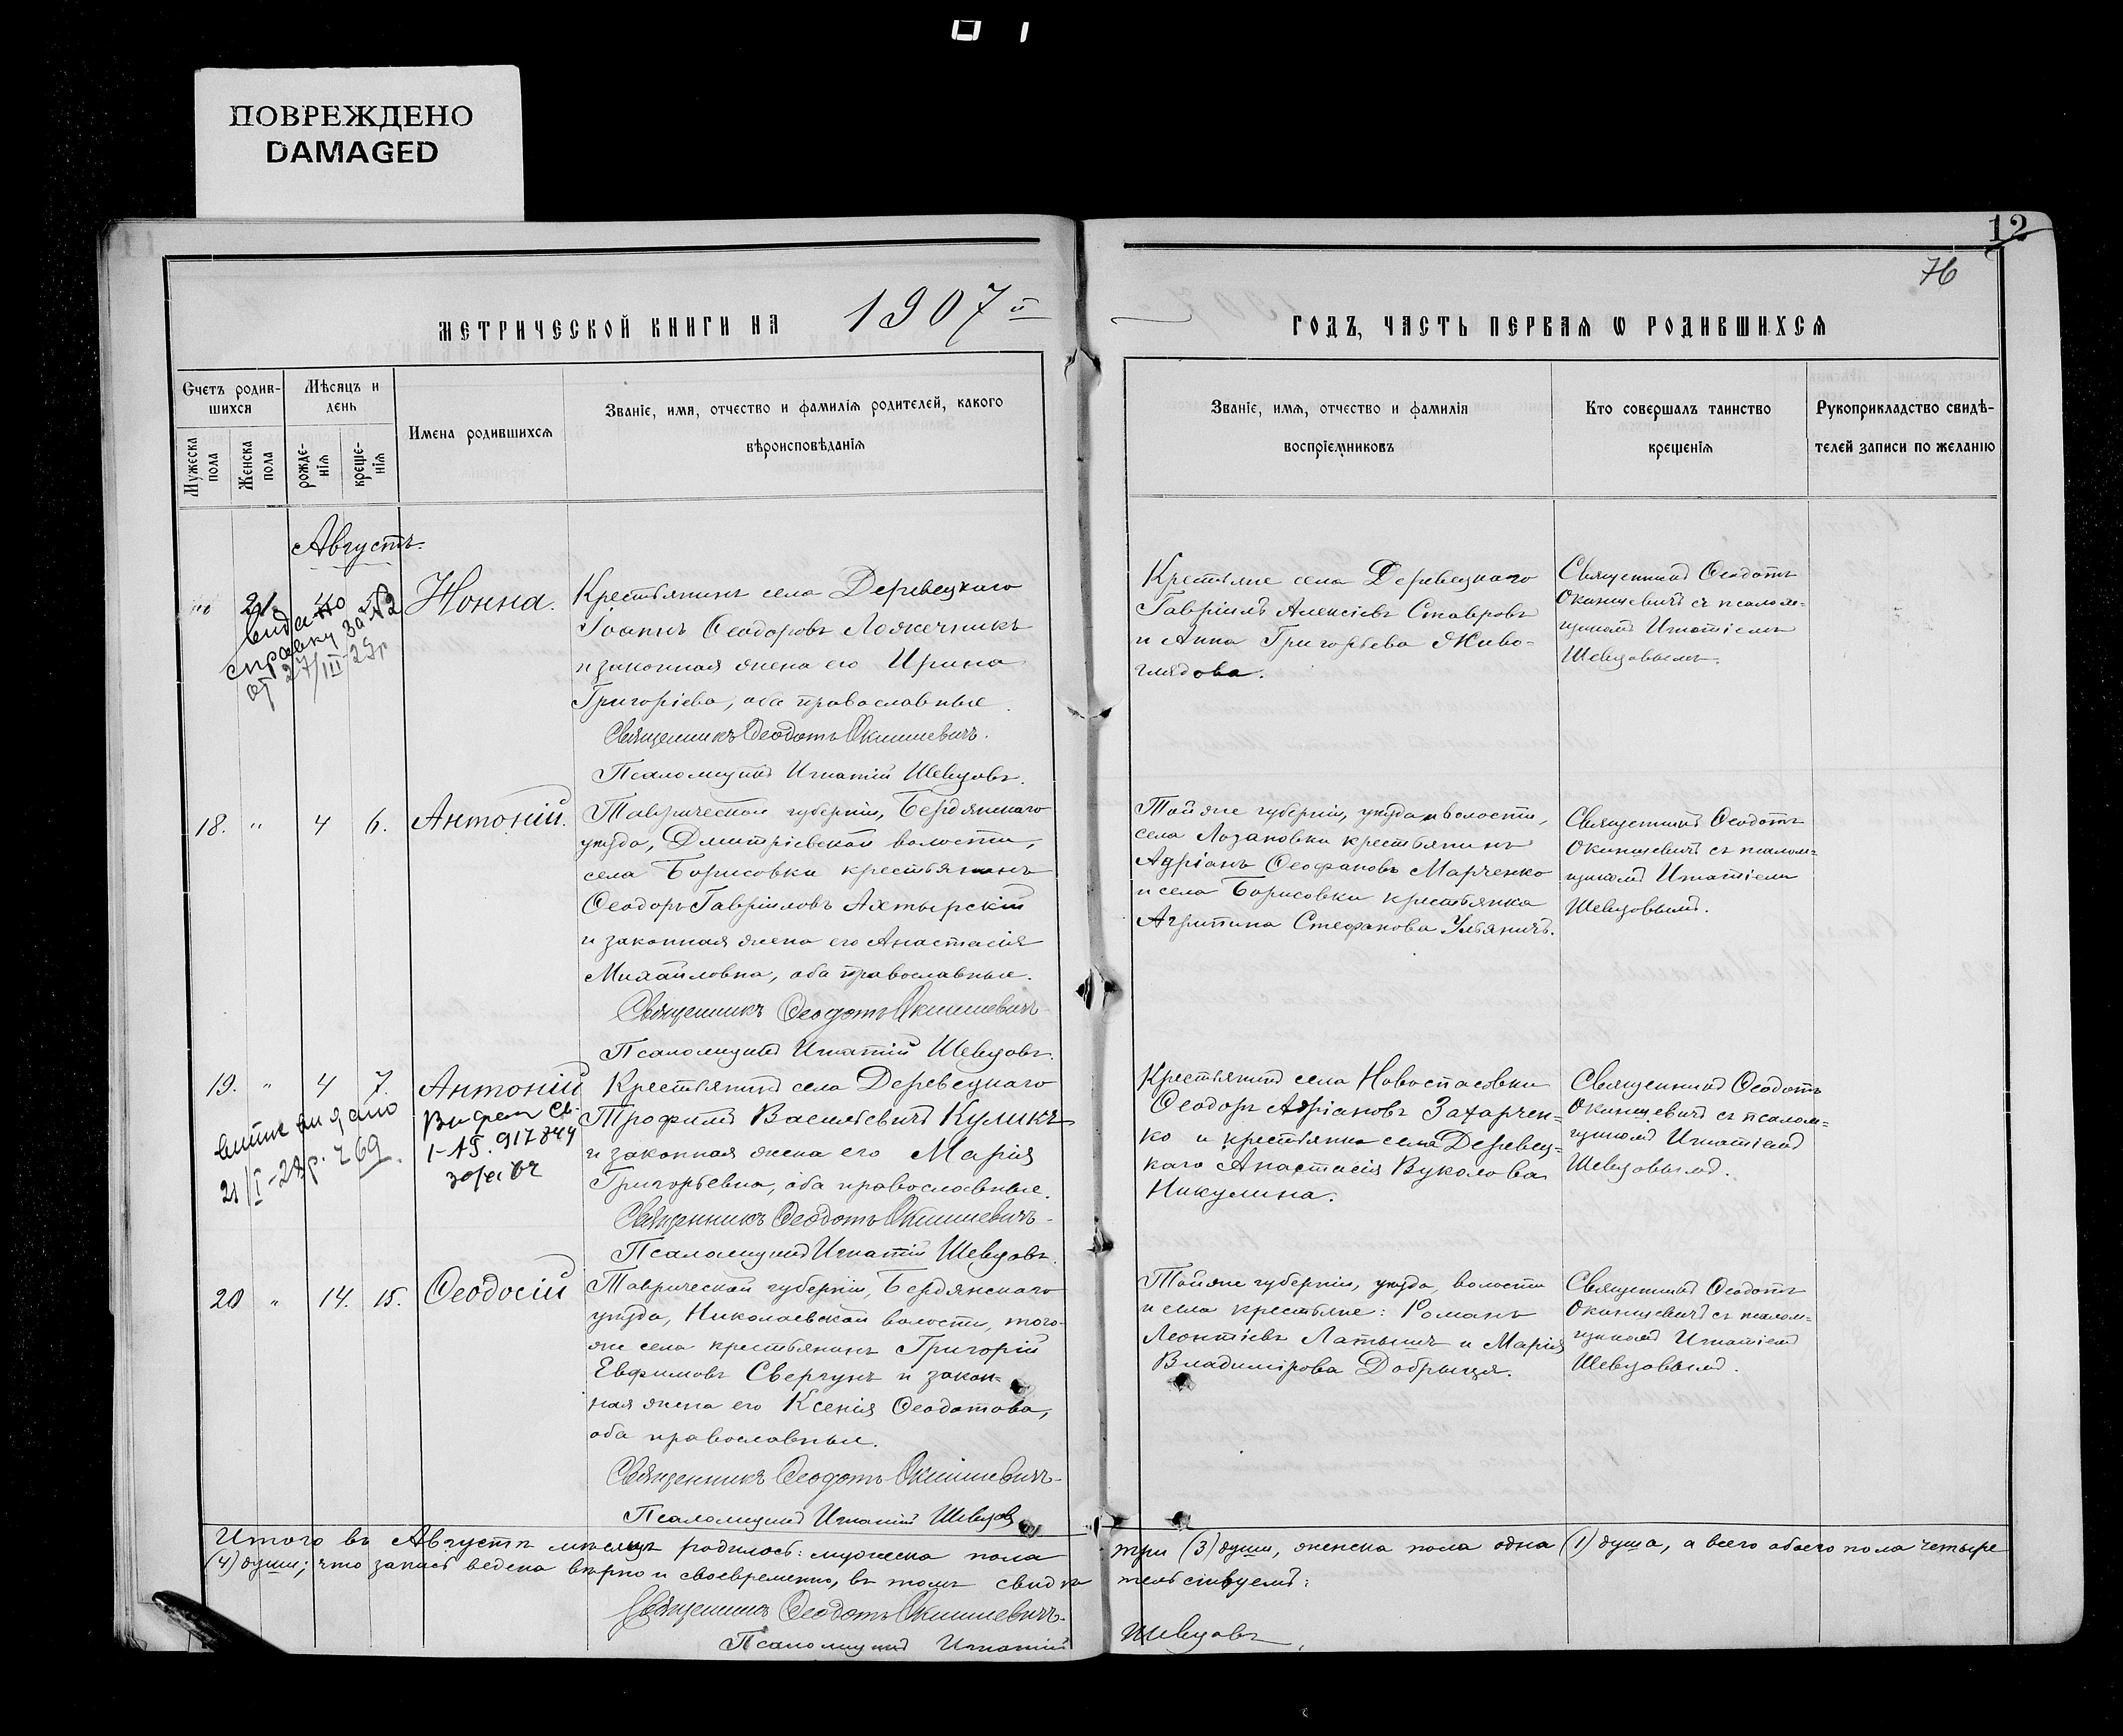 ПОВРЕЖДЕНО
DAMAGED
12
76
МЕТРИЧЕСКОЙ КНИГИ НА 1907й
ГОДЪ, ЧАСТЬ ПЕРВАЯ Ѡ РОДИВШИХСЯ
Счетъ родив-
шихся
Мѣсяцъ и
день
Мужеска
пола
Женска
пола
рожде-
нія
креще-
нія
Имена родившихся
Званіе, имя, отчество и фамилія родителей, какого
вѣроисповѣданія
Званіе, имя, отчество и фамилія
воспріемниковъ
Кто совершалъ таинство
крещенія
Рукоприкладство свидѣ-
телей записи по желанію
Августъ.
21.
Нонна.
видано
справку за №2
от 27/III-29р
Крестьянинъ села Деревецкаго
Іоаннъ Ѳеодоровъ Ложечникъ
и законная жена его Ирина
Григоріева, оба православные.
Священникъ Ѳеодотъ Окиншевичъ.
Псаломщикъ Игнатій Шевцовъ.
Крестьяне села Деревецкаго
Гавріилъ Алексіевъ Ставровъ
и Анна Григорьева Живо-
глядова.
Священникъ Ѳеодотъ
Окиншевичъ съ псалом-
щикомъ Игнатіемъ
Шевцовымъ.
18. " 4 6. Антоній.
Таврической губерніи, Бердянскаго
уѣзда, Дмитріевской волости,
села Борисовки крестьянинъ
Ѳеодоръ Гавріиловъ Ахтырскій
и законная жена его Анастасія
Михайловна, оба православные.
Священникъ Ѳеодотъ Окиншевичъ
Псаломщикъ Игнатій Шевцовъ.
Той же губерніи, уѣзда и волости,
села Лозановки крестьянинъ
Адріанъ Ѳеофановъ Марченко
и села Борисовки крестьянка
Агрипина Стефанова Ульяничъ.
Священникъ Ѳеодотъ
Окиншевичъ съ псалом=
щикомъ Игнатіемъ
Шевцовымъ.
19. " 4 7. Антоній
видано
21/I-28р. 769.
Св.
917844
Крестьянинъ села Деревецкаго
Трофимъ Васильевичъ Куликъ
и законная жена его Марія
Григорьевна, оба православные.
Священникъ Ѳеодотъ Окиншевичъ
Псаломщикъ Игнатій Шевцовъ.
Крестьянинъ села Новоспасовки
Ѳеодоръ Адріановъ Захарчен-
ко и крестьянка села Деревец-
каго Анастасія Вуколова
Никулина.
Священникъ Ѳеодотъ
Окиншевичъ съ псалом=
щикомъ Игнатіемъ
Шевцовымъ.
20 " 14. 15. Ѳеодосій
Таврической губерніи, Бердянскаго
уѣзда, Николаевской волости, того-
же села крестьянинъ Григорій
Евфимовъ Сверчунъ и закон-
ная жена его Ксенія Ѳеодотова,
оба православные.
Священникъ Ѳеодотъ Окиншевичъ
Псаломщикъ Игнатій Шевцовъ
Той же губерніи, уѣзда, волости
и села крестьяне: Романъ
Леонтіевъ Латышъ и Марія
Владимірова Добрыця.
Священникъ Ѳеодотъ
Окиншевичъ съ псалом=
щикомъ Игнатіемъ
Шевцовымъ.
Итого въ Августѣ мѣсяцѣ родилось: мужеска пола три (3) души, женска пола одна (1) душа, а всего обоего пола четыре
(4) души; что запись ведена вѣрно и своевременно, въ томъ свидѣтельствуемъ:
Священникъ Ѳеодотъ Окиншевичъ.
Псаломщикъ Игнатій Шевцовъ.